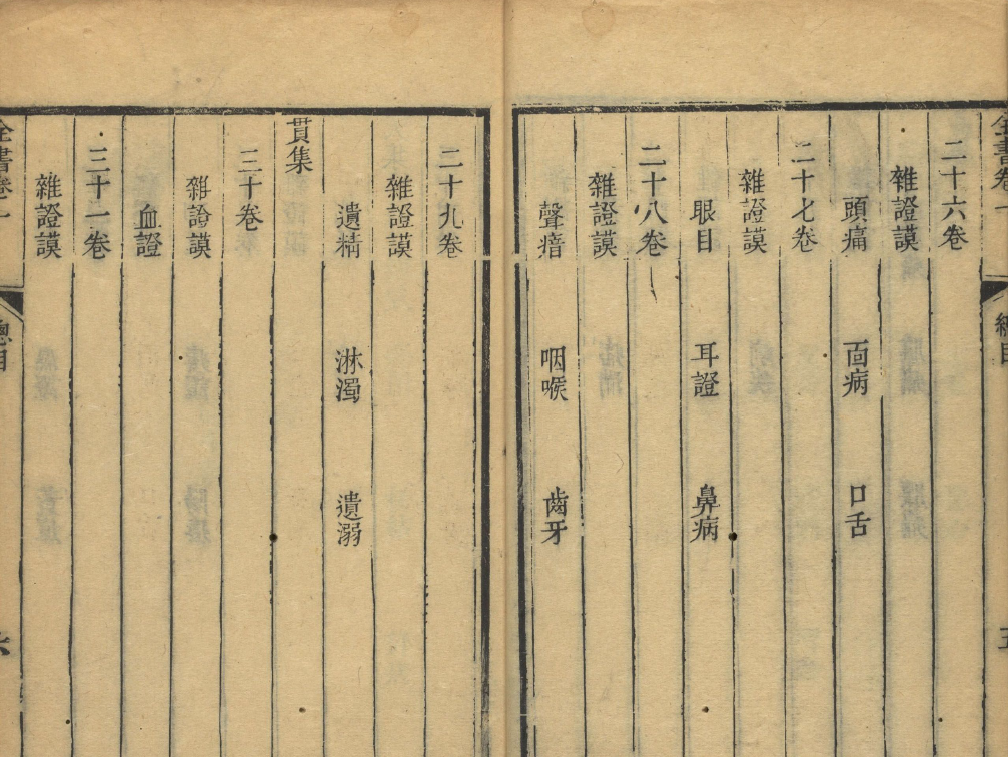 二十六卷
雜證謨
頭痛 面病 口舌
二十七卷
雜證謨
眼目 耳證 鼻病
二十八卷
雜證謨
聲瘖 咽喉 齒牙
二十九卷
雜證謨
遺精 淋濁 遺溺
貫集
三十卷
雜證謨
血證
三十一卷
雜證謨